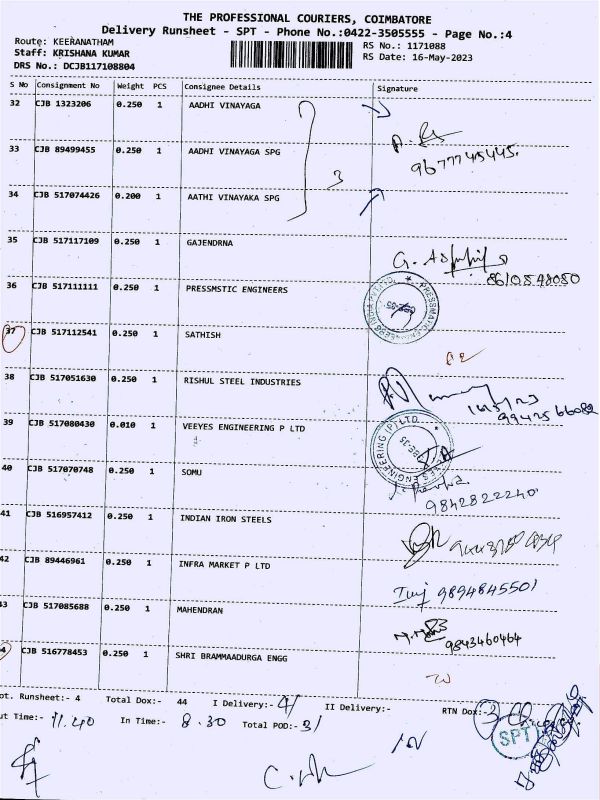 THE PROFESSIONAL COURIERS, COIMBATORE
Delivery Runsheet - SPT - Phone No.:0422-3505555 - Page No.:4
Route: KEERANATHAM
Staff: KRISHANA KUMAR RS No.: 1171088
DRS No.: DCJB117108804 RS Date: 16-May-2023
S No Consignment No Weight PCS Consignee Details Signature
32 CJB 1323206 0.250 1 AADHI VINAYAGA
33 CJB 89499455 0.250 1 AADHI VINAYAGA SPG
3 9677745445.
34 CJB 517074426 0.200 1 AATHI VINAYAKA SPG
35 CJB 517117109 0.250 1 GAJENDRNA
8610548080
36 CJB 517111111 0.250 1 PRESSMSTIC ENGINEERS
37 CJB 517112541 0.250 1 SATHISH
38 CJB 517051630 0.250 1 RISHUL STEEL INDUSTRIES
9942566082
39 CJB 517080430 0.010 1 VEEYES ENGINEERING P LTD
40 CJB 517070748 0.250 1 SOMU
9842822240
41 CJB 516957412 0.250 1 INDIAN IRON STEELS
42 CJB 89446961 0.250 1 INFRA MARKET P LTD
9894845501
43 CJB 517085688 0.250 1 MAHENDRAN
9843460464
CJB 516778453 0.250 1 SHRI BRAMMAADURGA ENGG
ot. Runsheet:- 4 Total Dox:- 44 I Delivery:- 41 II Delivery:- RTN Dox:- 3
ut Time:- 11.40 In Time:- 8.30 Total POD:- 31
SPT